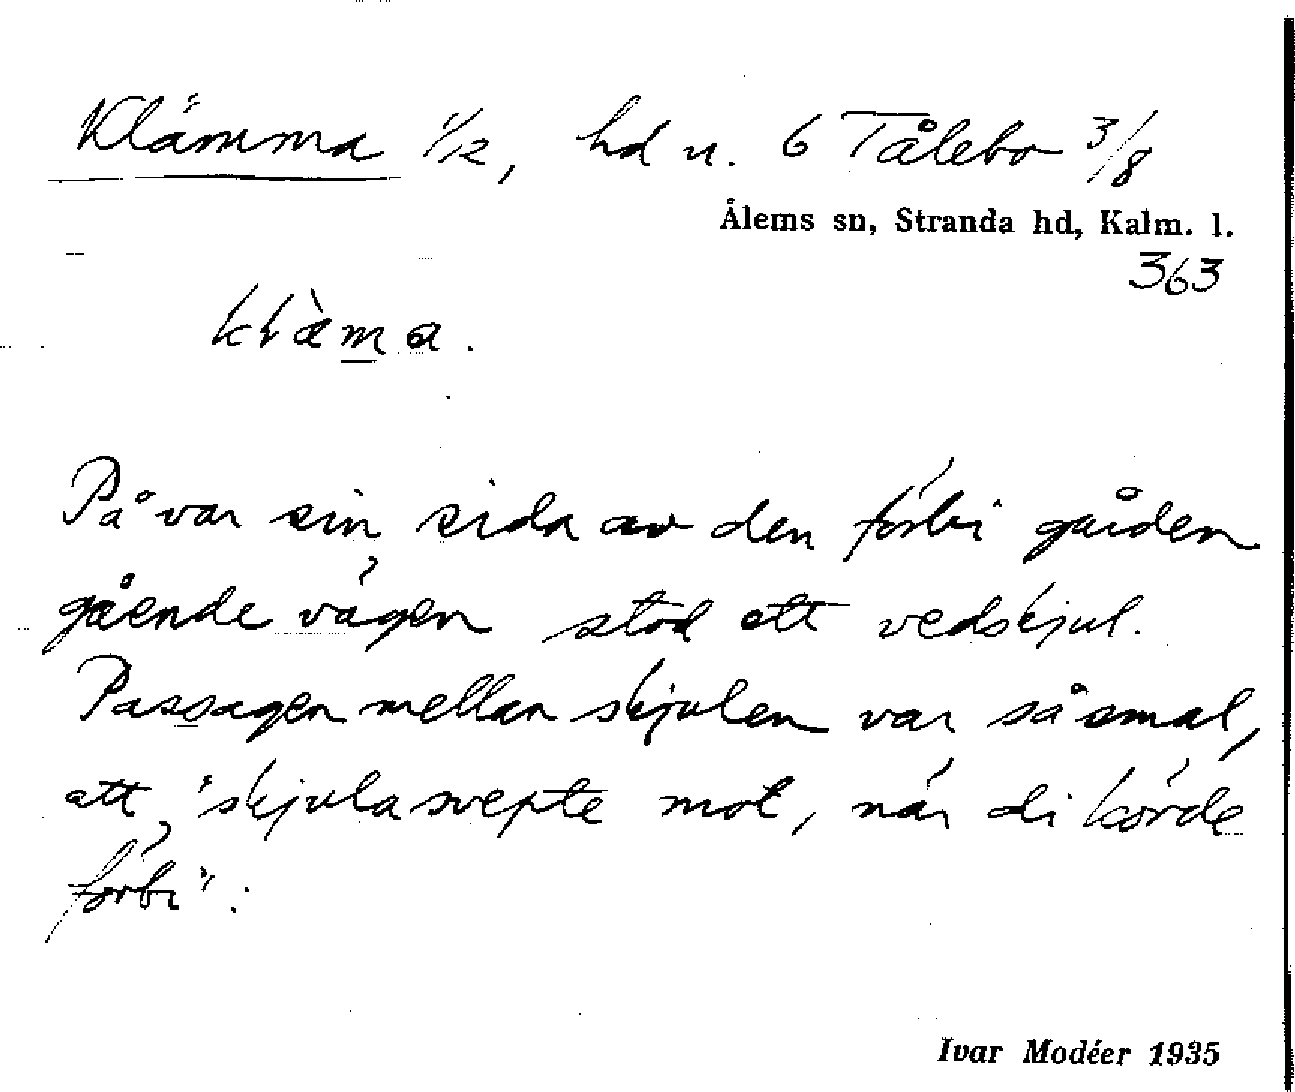 Klämma 1/2, hd n. 6 Tålebo 3/8
Ålems sn, Stranda hd, Kalm. l.
363
klàma.
På var sin sida av den förbi gården
gående vägen stod ett vedskjul.
Passagen mellan skjulen var så smal,
att "skjula svepte mot, när di körde
förbi".
Ivar Modéer 1935